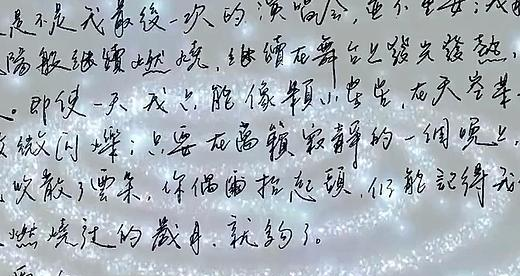 是不是我最後一次的演唱會,並不重要;我
陽般繼續燃燒,繼續在舞台上發光發熱,
。即使一天我只能像顆小星星,在天空某
微閃爍;只要在萬籟寂靜的一個晚上,
吹散了雲朵,你偶爾抬起頭,仍能記得我
燃燒過的歲月,就夠了。